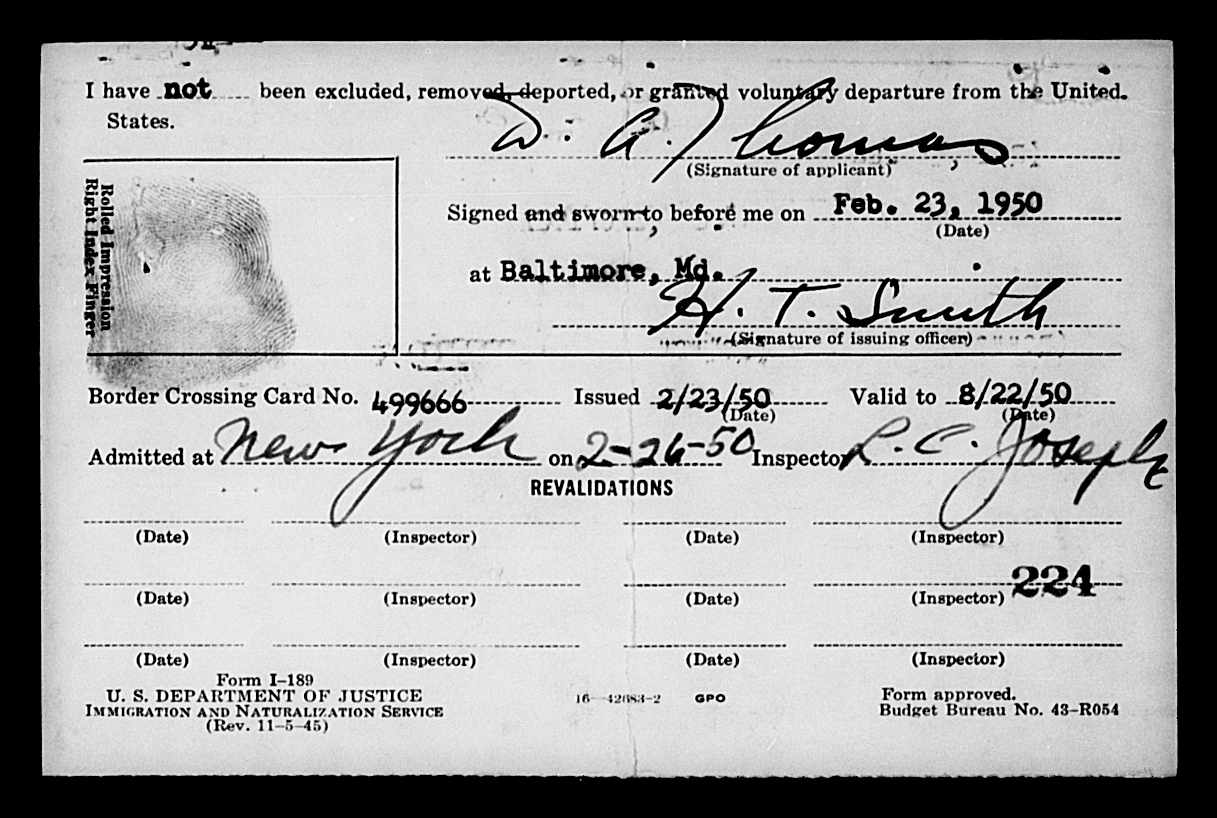 I have not been excluded, removed, deported, or granted voluntary departure from the United.
States.
D. A. Thomas
(Signature of applicant)
Rolled Impression
Right Index Finger
Signed and sworn to before me on Feb. 23, 1950
(Date)
at Baltimore, Md.
H. T. Smith
(Signature of issuing officer)
Border Crossing Card No. 499666 Issued 2/23/50 Valid to 8/22/50
(Date) (Date)
Admitted at New York on 2-26-50 Inspector R. C. Joseph
REVALIDATIONS
(Date) (Inspector) (Date) (Inspector)
224
(Date) (Inspector) (Date) (Inspector)
(Date) (Inspector) (Date) (Inspector)
Form I-189
U. S. DEPARTMENT OF JUSTICE
IMMIGRATION AND NATURALIZATION SERVICE
(Rev. 11-5-45)
16—42683-2 GPO
Form approved.
Budget Bureau No. 43-R054